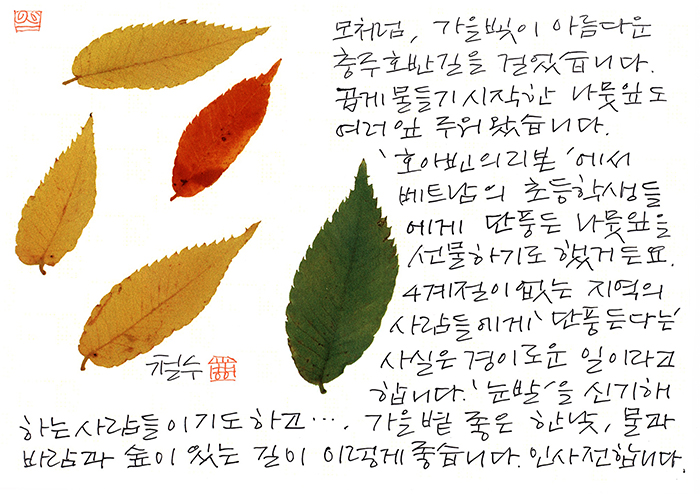 모처럼, 가을빛이 아름다운
충주호반길을 걸었습니다.
곱게 물들기 시작한 나뭇잎도
여러 잎 주워 왔습니다.
'호아빈의 리본'에서
베트남의 초등학생들
에게 단풍든 나뭇잎을
선물하기로 했거든요.
4계절이 없는 지역의
사람들에게 '단풍든다'는
사실은 경이로운 일이라고
합니다. '눈발'을 신기해
하는 사람들이기도 하고…. 가을볕 좋은 한낮, 물과
바람과 숲이 있는 길이 이렇게 좋습니다. 인사 전합니다.
철수